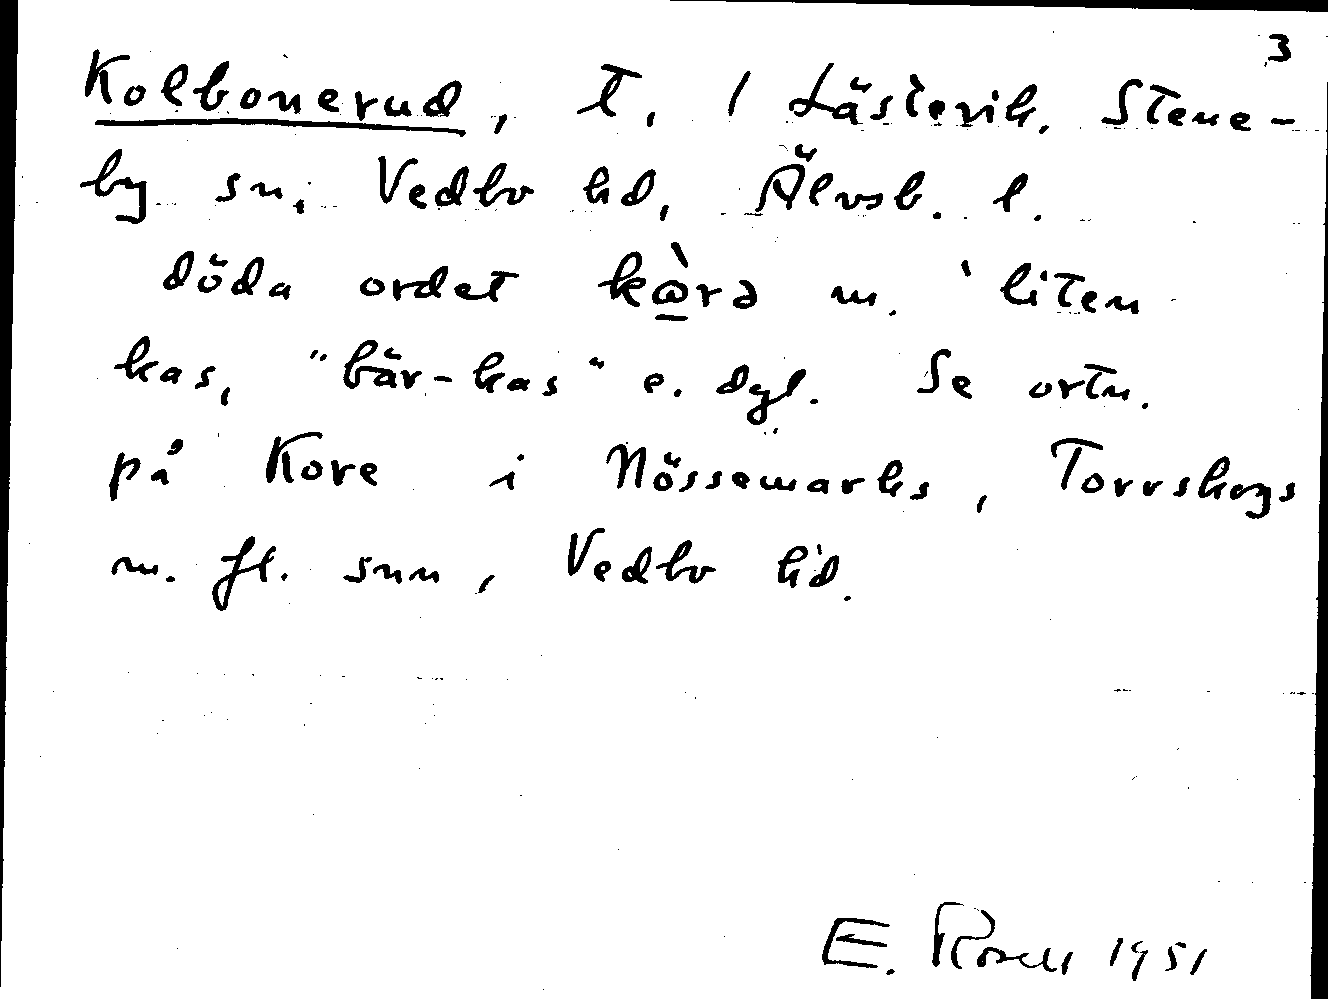 3
Kolbonerud, t. / Lästevik, Stene-
by sn, Vedbo hd, Älvsb. l.
döda ordet kɷ̀rə m. 'liten
kas, "bär-kas" e. dyl. Se ortn.
på Kore i Nössemarks, Torrskogs
m. fl. snn, Vedbo hd.
E. Rosell 1951